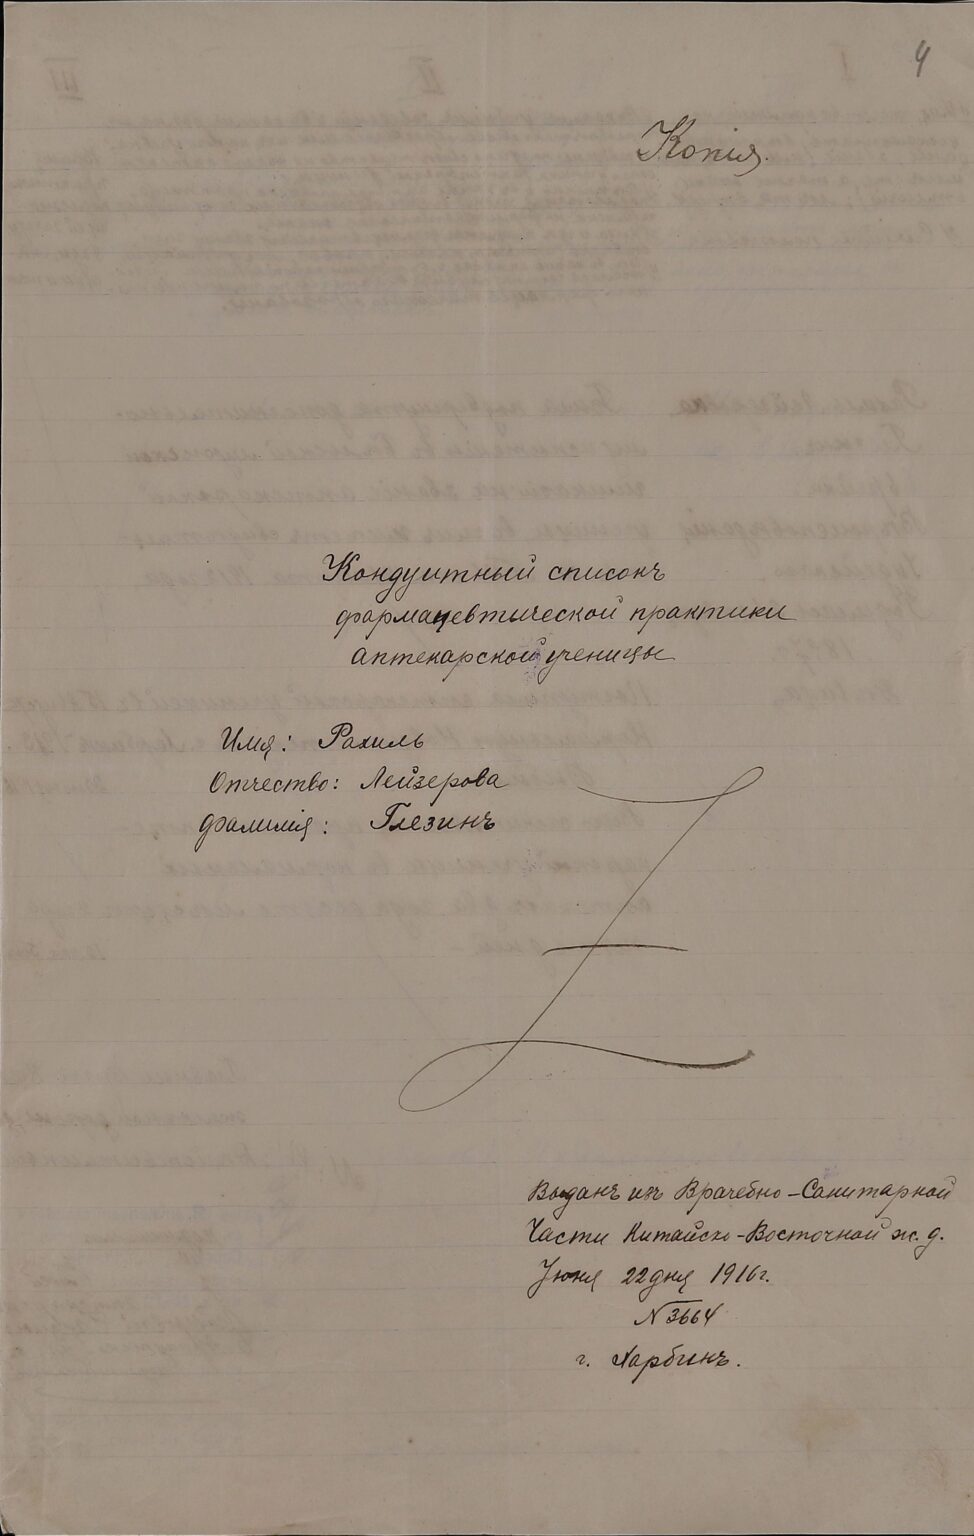 4
Копія.
Кондуитный списокъ
фармацевтической практики
аптекарской ученицы
Имя: Рахиль
Отчество: Лейзерова
Фамилія: Глезинъ
Выданъ изъ Врачебно-Санитарной
Части Китайско-Восточной ж. д.
Іюня 22 дня 1916 г.
№ 3664
г. Харбинъ.